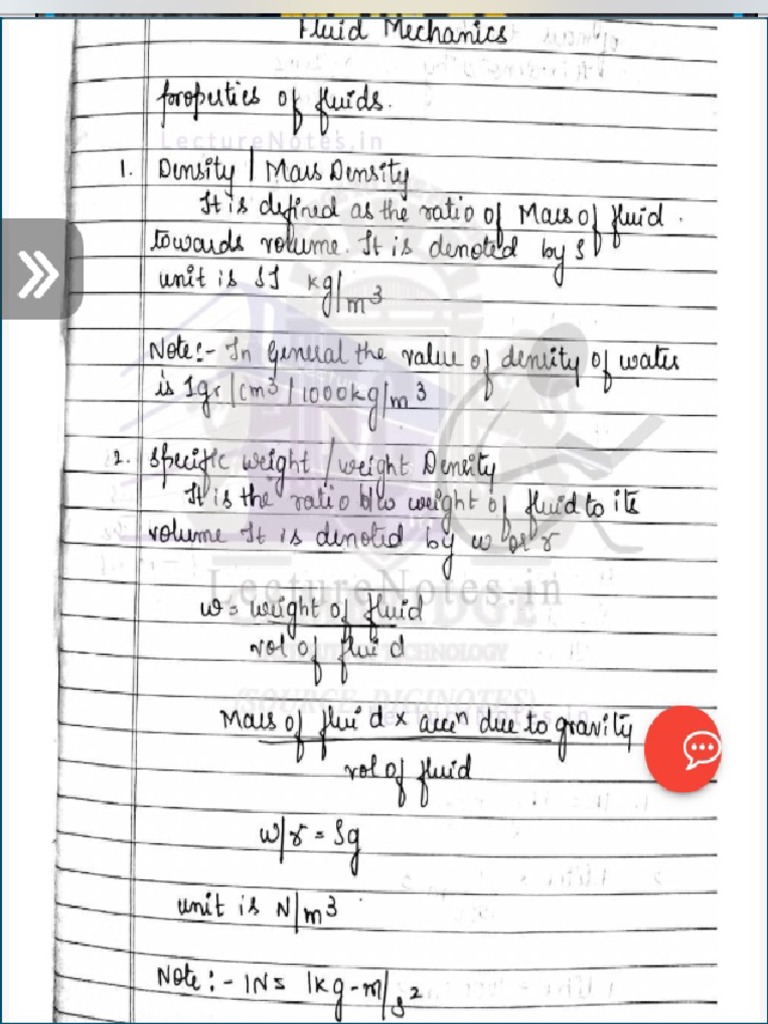 Fluid Mechanics
properties of fluids.
LectureNotes.in
1. Density / Mass Density
It is defined as the ratio of Mass of fluid.
towards volume. It is denoted by ρ
unit is SI kg/m³
Note:- In General the value of density of water
is 1gr/cm³ / 1000kg/m³
2. Specific weight / weight Density
It is the ratio b/w weight of fluid to its
volume It is denoted by w or γ
LectureNotes.in
w = weight of fluid
vol of fluid
TECHNOLOGY
(SOURCE DIGINOTES)
Mass of fluid × accⁿ due to gravity
vol of fluid
w/γ = ρg
unit is N/m³
Note:- 1N = 1kg-m/s²